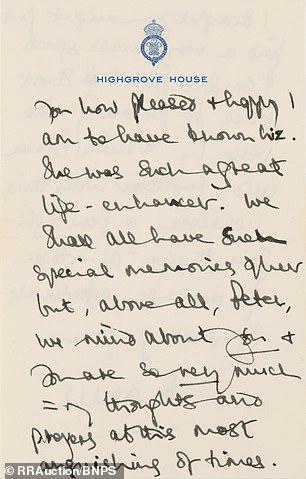 HIGHGROVE HOUSE
you how pleased & happy I
am to have known Liz.
She was such a great
life-enhancer. We
shall all have such
special memories of her
but, above all, Peter,
we mind about you &
you are so very much
in my thoughts and
prayers at this most
anguishing of times.
©RRAuction/BNPS